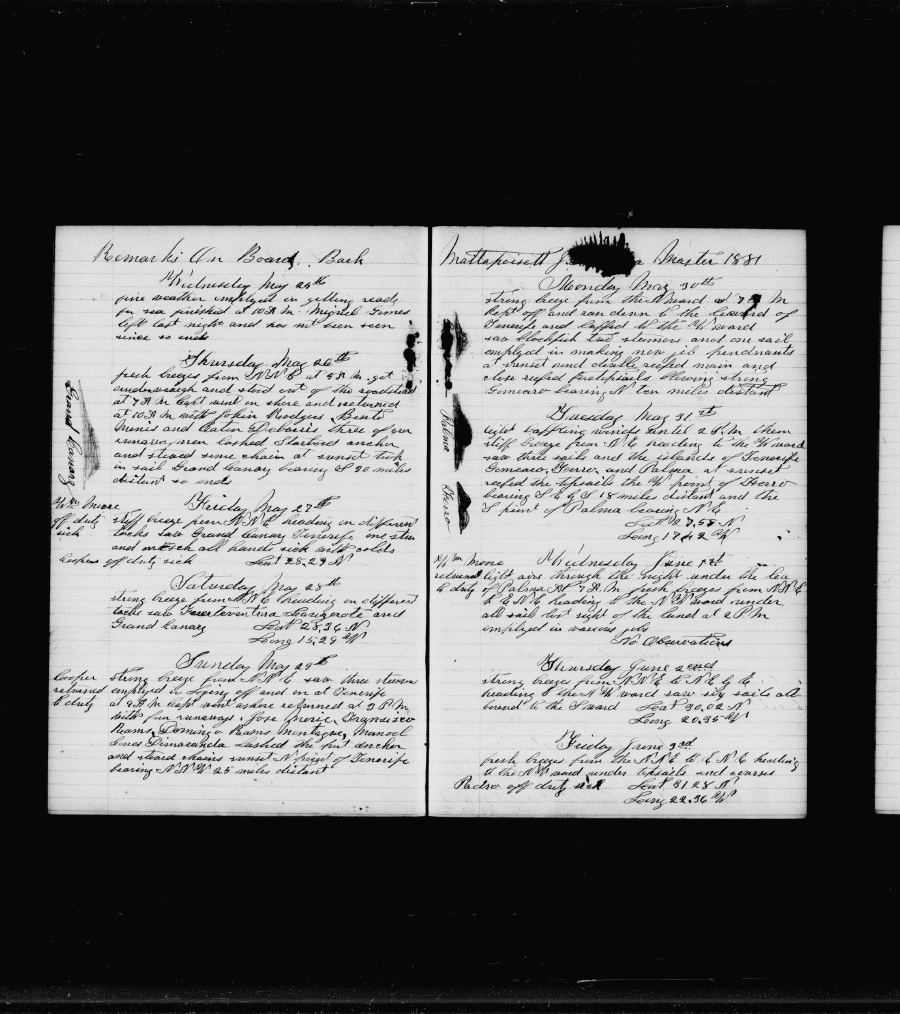 Remarks On Board Bark
Wednesday May 25th
fine weather employed in getting ready
for sea finished at 10 A M Miguel Gomes
left last night and has not been seen
since so ends
Thursday May 26th
fresh breezes from N N E at 5 A M got
underweigh and stood out of the roadstead
at 7 A M Capt went on shore and returned
at 10 A M with John Rodgers Bento
and three of our
runaway men lashed Starbord anchor
and stowed some chain at sunset took
in sail Grand Canary bearing S 20 miles
distant so ends
Grand Canary
Friday May 27th
Wm Moore
off duty
sick
stiff breeze from N N E heading on different
tacks saw Grand Canary Teneriffe one
and all hands sick with colds
Cooper off duty sick Lat 28,29 N
Saturday May 28th
strong breeze from N N E heading on different
tacks saw Fuerteventura Lanzerote and
Grand Canary Lat 28,36 N
Long 15,29 W
Sunday May 29th
Cooper
returned
to duty
strong breeze from N N E saw three steamers
employed in laying off and on at Teneriffe
at 9 A M Capt went ashore returned at 3 P M
with four runaways Jose
Ramos, Domingo Ramos Montagne, Manoel
lashed the port anchor
and stowed chains sunset N point of Teneriffe
bearing N N W 25 miles distant
Mattapoisett J. Master 1881
Monday May 30th
strong breeze from the N ward at 7 A M
kept off and ran down to the leeward of
Teneriffe and luffed to the W ward
saw blackfish two steamers and one sail
employed in making new jib pendnants
at sunset dubble reefed main and
close reefed foretopsails blowing strong
Gomearo bearing N ten miles distant
Tuesday May 31st
light baffling winds until 2 P M then
stiff breeze from N E heading to the W ward
saw three sails and the islands of Teneriffe
Gomearo, Ferro, and Palma at sunset
reefed the topsails the W point of Ferro
bearing S E by S 18 miles distant and the
S point of Palma bearing N E
Lat 27,58 N
Long 17,42 W
Palma
Ferro
Wednesday June 1st
Wm Moore
returned
to duty
light airs through the night under the lea
of Palma At 7 A M fresh breezes from N N E
to E N E heading to the N W ward under
all sail lost sight of the land at 2 P M
employed in various jobs
No Observations
Thursday June 2nd
strong breezes from N N E to N E by E
heading to the N W ward saw six sails all
bound to the S ward Lat 30,02 N
Long 20,35 W
Friday June 3rd
fresh breezes from the N N E to E N E heading
to the N W ward under topsails and courses
Padro off duty sick Lat 31 28 N
Long 22,36 W